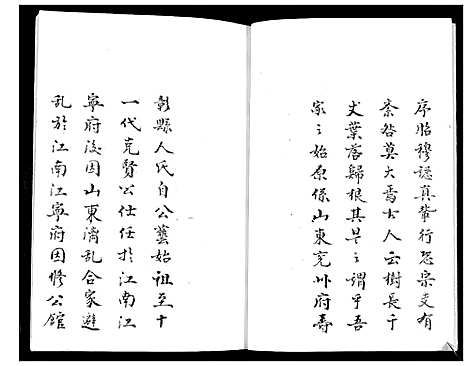 序昭穆認真輩行恐宗支有
紊咎莫大焉古人云樹長千
丈葉落歸根其是之謂乎吾
家之始原係山東兗州府壽
彰縣人氏自公藝始祖至十
一代克賢公仕任於江南江
寧府後因山東濟亂合家避
亂於江南江寧府因修公館